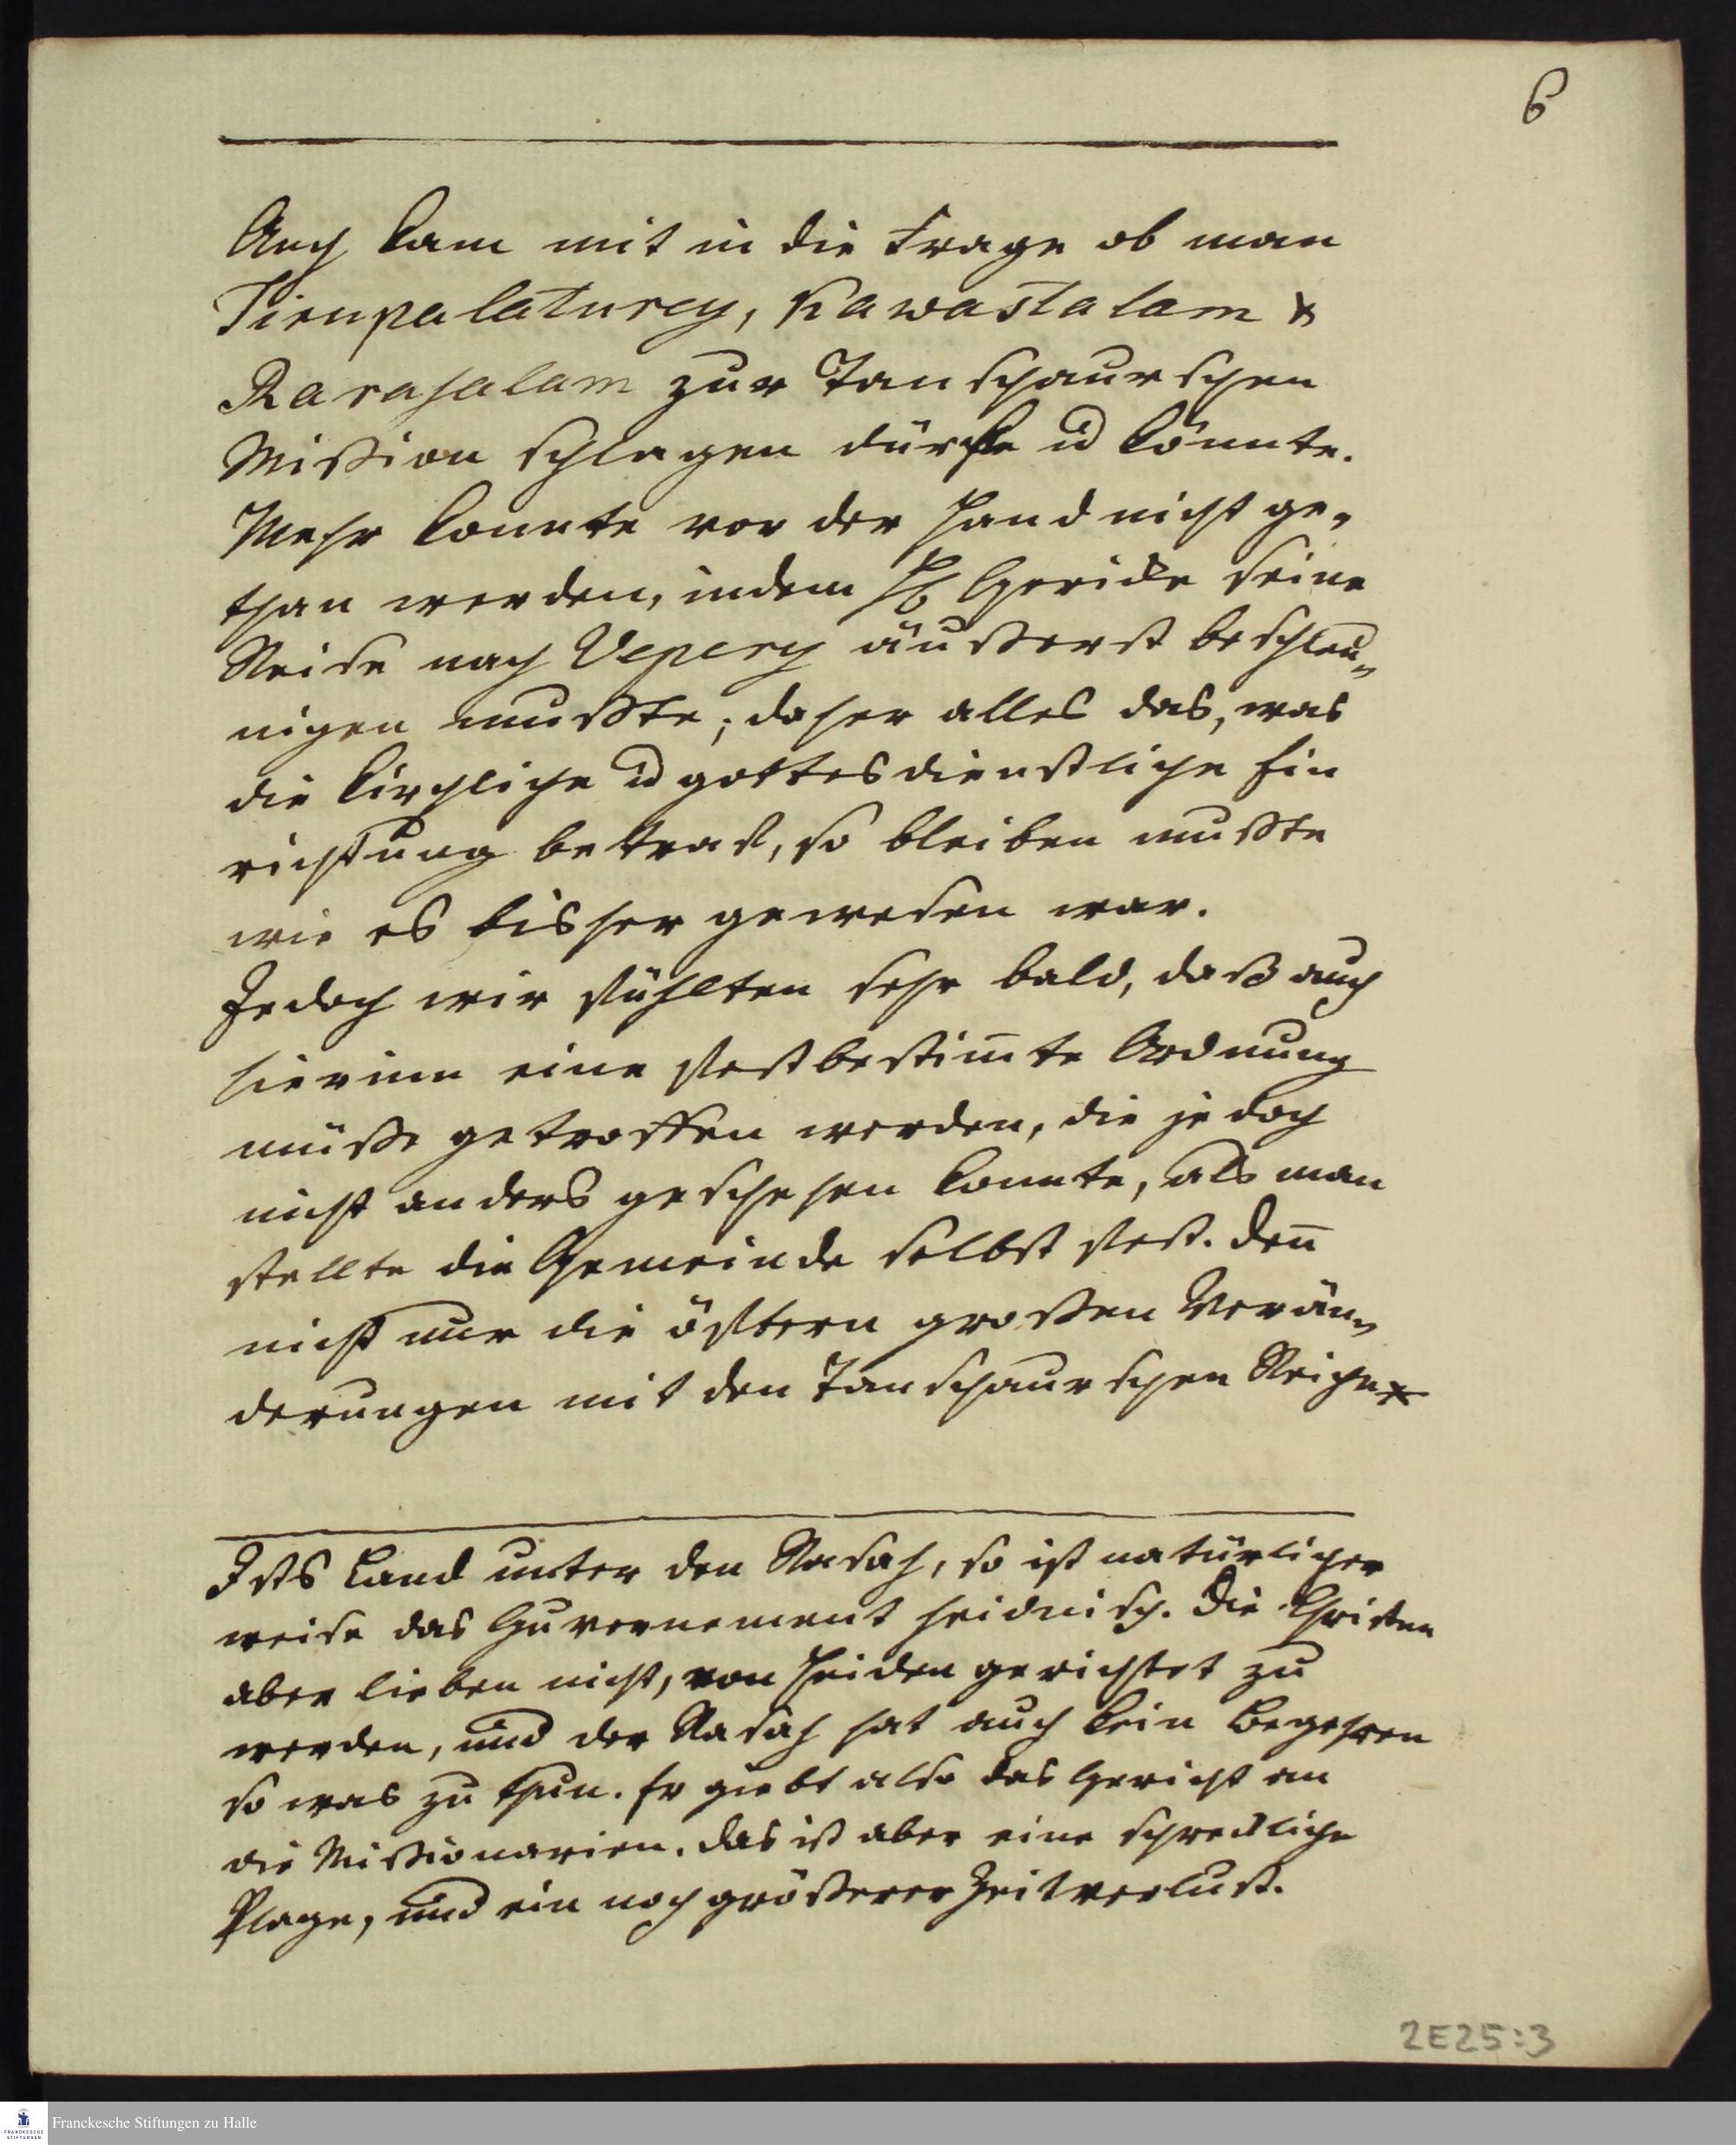 6
Auch kam mit in die Frage ob man
Tirupalaturey, Kawastalam &
Rarasalam zur Tanschaurschen
Mission schlagen dürfe u könnte.
Mehr konnte vor der Hand nicht ge„
than werden, indem H Gericke seine
Reise nach Vepery äußerst beschleu„
nigen mußte; daher alles das, was
die kirchliche u gottesdienstliche Ein
richtung betraf, so bleiben mußte
wie es bisher gewesen war.
Jedoch wir fühlten sehr bald, daß auch
hierinn eine festbestim̅te Ordnung
müße getroffen werden, die jedoch
nicht anders geschehen konnte, als man
stellte die Gemeinde selbst fest. Den̅
nicht nur die öftern großen Verän„
derungen mit den Tanschaurschen Reiche*
Ists Land unter den Rasah, so ist natürlicher
weise das Guvernement heidnisch. Die Christen
aber lieben nicht, von Heiden gerichtet zu
werden, und der Rasah hat auch kein Begehren
so was zu thun. Er giebt also das Gericht an
die Missionarien. das ist aber eine schreckliche
Plage, und ein noch größerer Zeitverlust.
2E25:3
Franckesche Stiftungen zu Halle
FRANCKESCHE
STIFTUNGEN